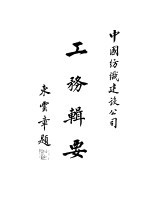 中國紡織建設公司
工務輯要
束雲章題